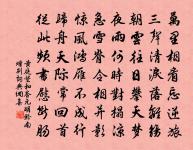 萬里相看忘逆旅
三聲清淚落離觴
朝雲往日攀天夢
夜雨何時對榻涼
急雪脊令相並影
驚風鴻雁不成行
歸舟天際常回首
從此頻書慰斷腸
黃庭堅和答元明黔南
贈別